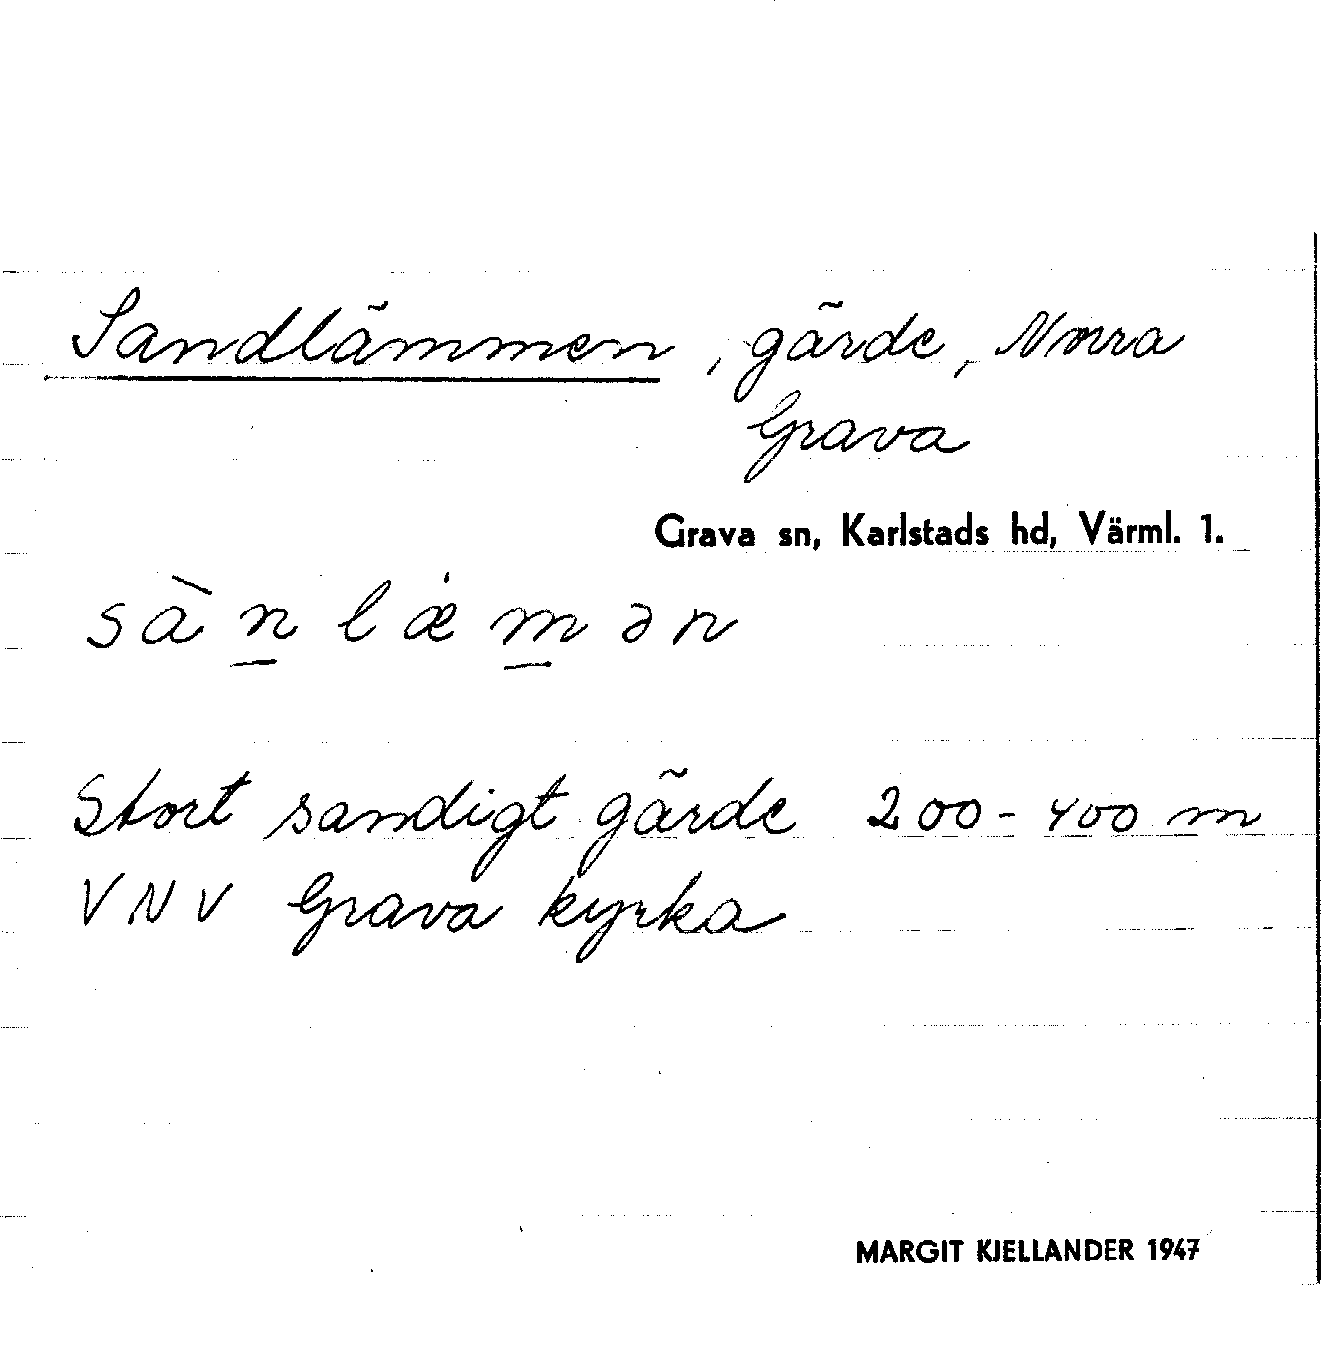 Sandlämmen, gärde, Norra
Grava
Grava sn, Karlstads hd, Värml. 1.
sàn̲læ̇m̲ən
Stort sandigt gärde 200-400 m
VNV Grava kyrka
MARGIT KJELLANDER 1947